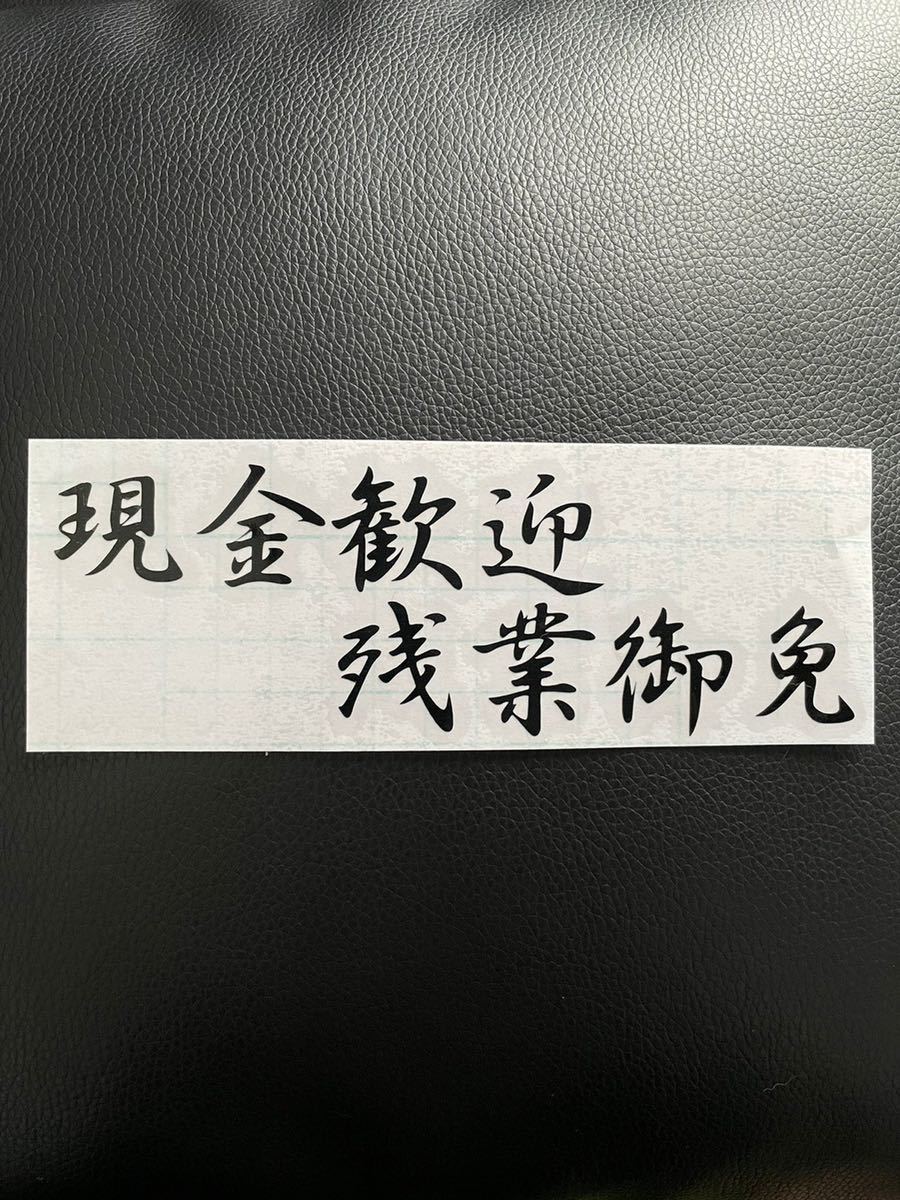 現金歓迎
残業御免